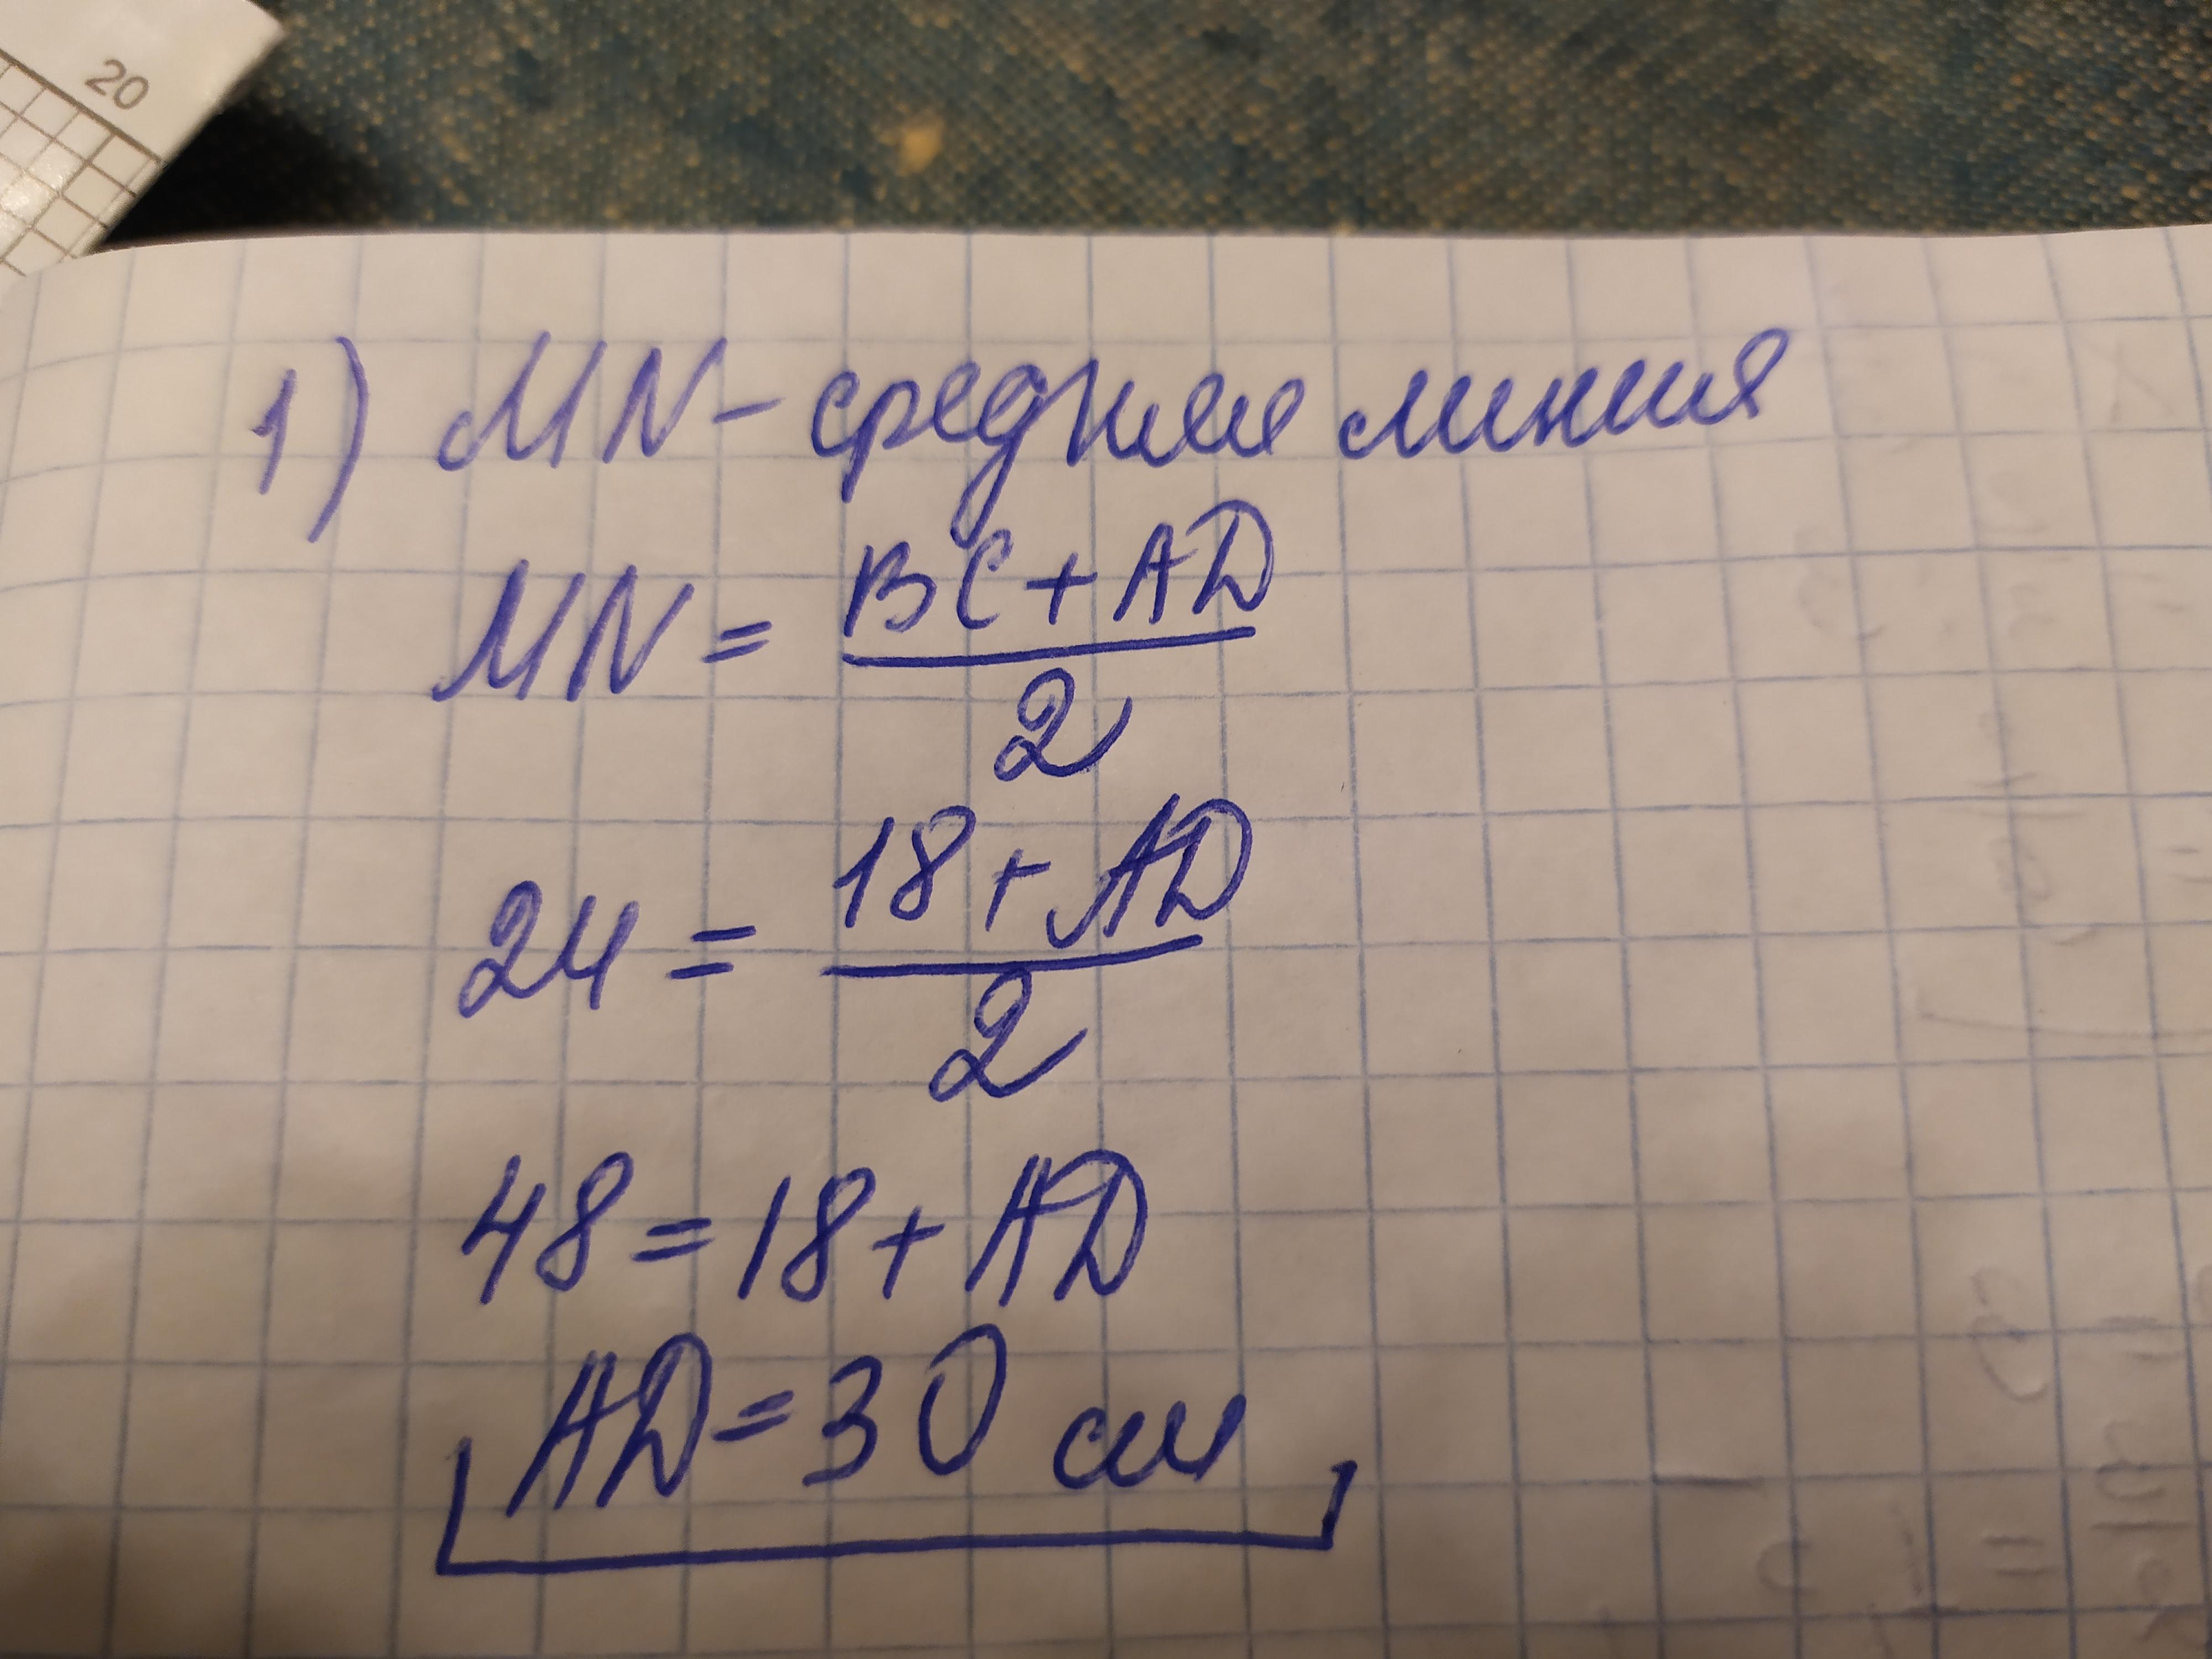 20
1) MN - средняя линия
MN = \frac{BC + AD}{2}
24 = \frac{18 + AD}{2}
48 = 18 + AD
AD = 30 см